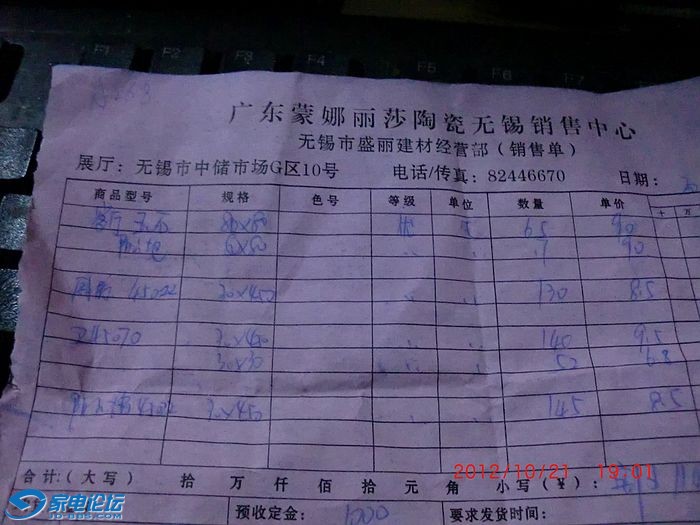 F1 F2 F3 F4 F5 F6 F7
广东蒙娜丽莎陶瓷无锡销售中心
无锡市盛丽建材经营部(销售单)
展厅:无锡市中储市场G区10号 电话/传真:82446670 日期:
商品型号 规格 色号 等级 单位 数量 单价 十 万
客厅 玉石 80×80 优 65 90
60×60 90
45022 30×450 130 8.5
45070 30×450 140 9.5
30×30 52 6.8
30×450 145 8.5
合计:(大写) 拾 万 仟 佰 拾 元 角 小写(¥):
预收定金: 1000 要求发货时间:
2012/10/21 19:01
家电论坛
JD-BBS.COM